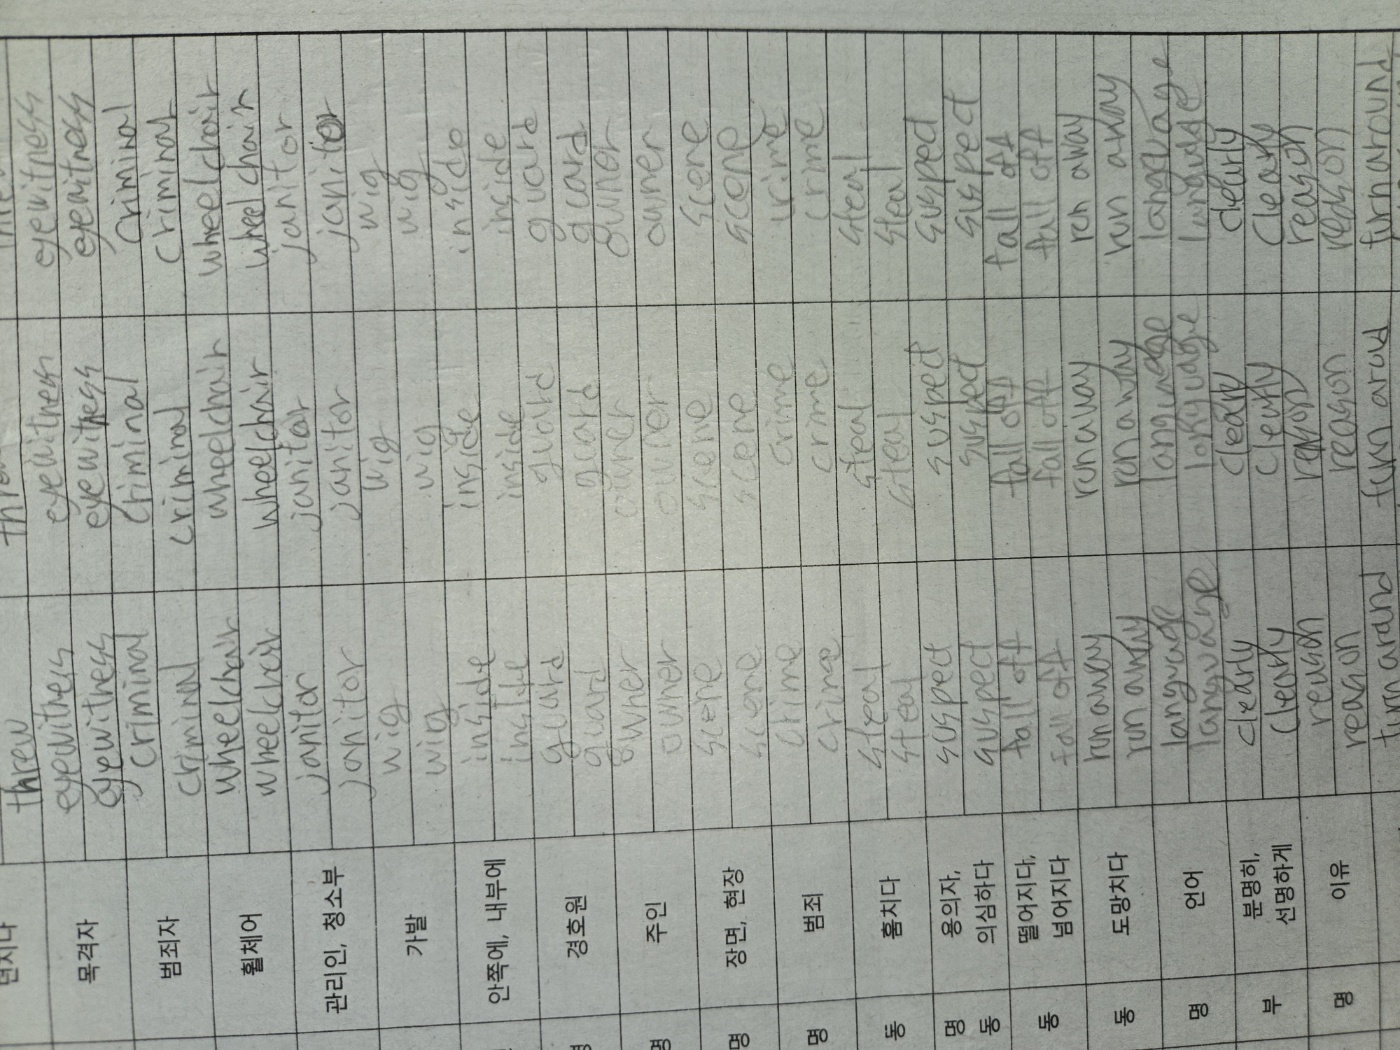 threw
목격자 eyewitness eyewitness eyewitness
eyewitness eyewitness eyewitness
명 범죄자 criminal criminal criminal
criminal criminal criminal
휠체어 wheelchair wheelchair wheelchair
wheelchair wheelchair
관리인, 청소부 janitor janitor janitor
janitor janitor janitor
가발 wig wig wig
wig wig wig
안쪽에, 내부에 inside inside inside
inside inside inside
명 경호원 guard guard guard
guard guard guard
명 주인 owner owner owner
owner owner owner
명 장면, 현장 scene scene scene
scene scene scene
명 범죄 crime crime crime
crime crime crime
동 훔치다 steal steal steal
steal steal steal
명 용의자, suspect suspect suspect
동 의심하다 suspect suspect suspect
동 떨어지다, fall off fall off fall off
넘어지다 fall off fall off fall off
동 도망치다 run away run away run away
run away run away run away
명 언어 language language language
language language
부 분명히, clearly clearly clearly
선명하게 clearly
명 이유 reason reason reason
reason reason reason
turn around turn aroud turn around